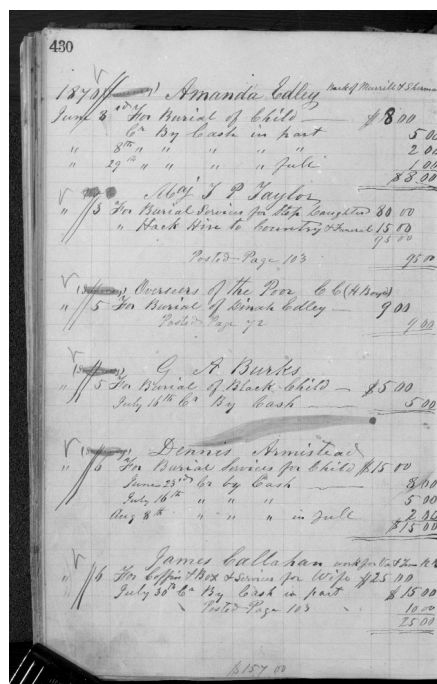 430
1870 Amanda Edley Back of Murrill &
June 3rd For Burial of Child — $8 00
Cr By Cash in part 5 00
" 8th " " " " " 2 00
" 29th " " " " full 1 00
$8.00
Maj T P Taylor
" 5 For Burial Services for Step Daughter 80 00
" Hack Hire to Country & Funeral 15 00
95 00
Posted Page 103 95 00
Overseers of the Poor C C
" 5 For Burial of Dinah Edley — 9 00
Posted Page 72 9 00
G A Burks
" 5 For Burial of Black Child — $5 00
July 16th Cr By Cash — 5 00
Dennis Armistead
" 6 For Burial Services for Child $15 00
June 23rd Cr by Cash — 8 00
July 16th " " " 5 00
Aug 8th " " " in full 2 00
$15 00
James Callahan work for
" 6 For Coffin & Box & Services for Wife $25 00
July 30th Cr By Cash in part $15 00
Posted Page 103 10 00
25 00
$157 00